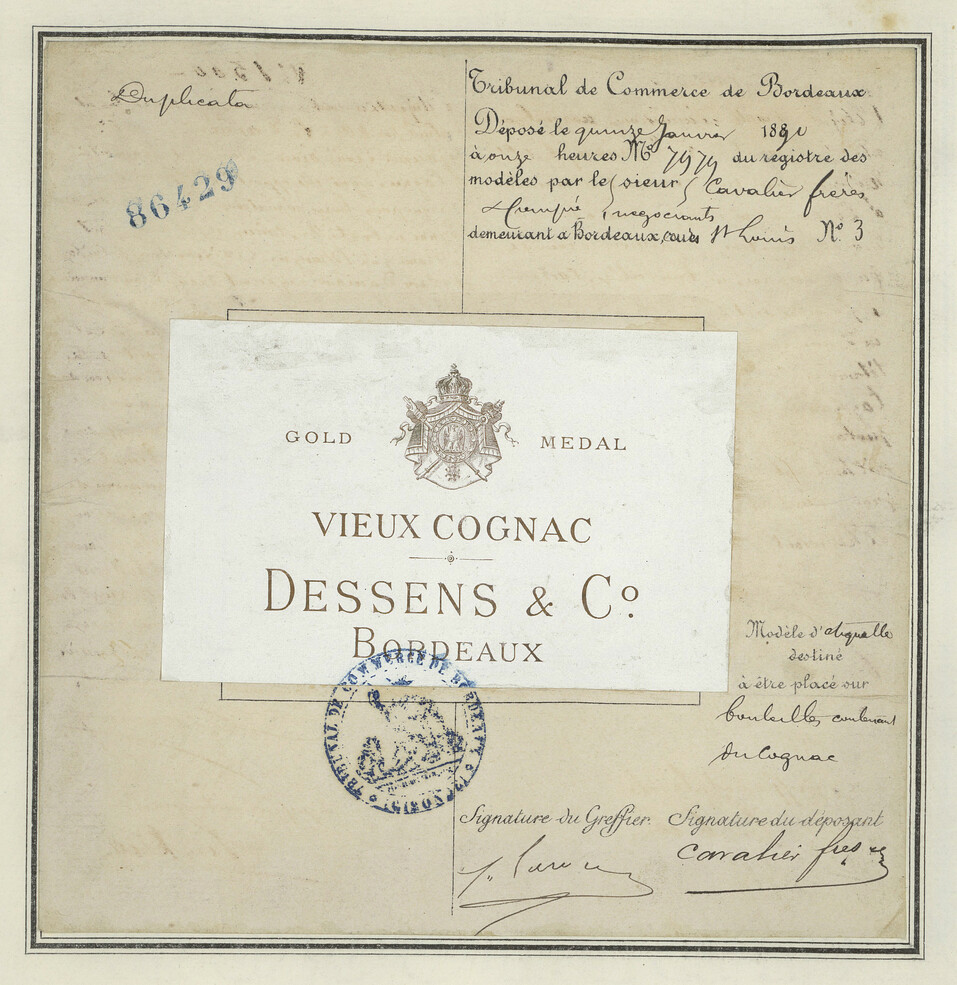 Duplicata
86429
Tribunal de Commerce de Bordeaux
Déposé le quinze Janvier 1890
à onze heures No 7979 du registre des
modèles par le sieur Cavalier frères
négociants
demeurant à Bordeaux, cours St Louis No 3
GOLD MEDAL
VIEUX COGNAC
DESSENS & Co
BORDEAUX
TRIBUNAL DE COMMERCE DE BORDEAUX
Modèle d'étiquette
destiné
à être placé sur
bouteilles contenant
du Cognac
Signature du Greffier. Signature du déposant
Cavalier fres